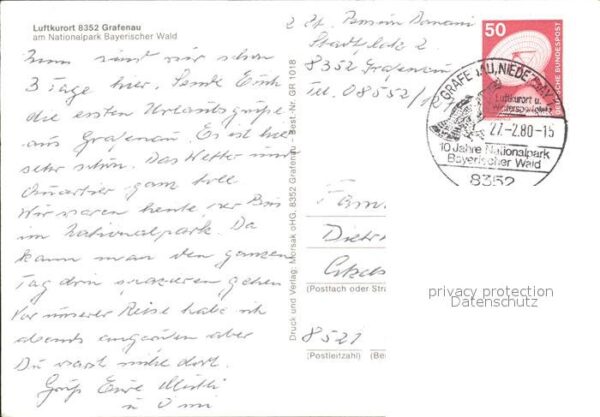 Luftkurort 8352 Grafenau
am Nationalpark Bayerischer Wald
Nun sind wir schon
3 Tage hier. Sende Euch
die ersten Urlaubsgrüße
aus Grafenau. Es ist hier
sehr schön. Das Wetter und
Quartier ganz toll
Wir waren heute per Bus
im Nationalpark. Da
kann man den ganzen
Tag drin spazieren gehen
Vor unserer Reise habe ich
abends angerufen aber
Du warst nicht dort.
Grüße Eure Mutti
u Omi
Druck und Verlag: Morsak oHG, 8352 Grafenau - Best.-Nr. GR 1018
z Zt. Pension
Stadtplatz 2
8352 Grafenau
Tel. 08552/
50
DEUTSCHE BUNDESPOST
Luftkurort u.
Wintersportplatz
27.-2.80-15
10 Jahre Nationalpark
Bayerischer Wald
8352
Fam
Dietr
(Postfach oder Stra
8521
(Postleitzahl) (Be
privacy protection
Datenschutz